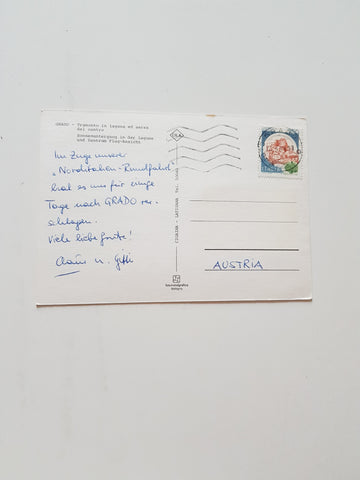 GRADO - Tramonto in laguna ed aerea
del centro
Sonnenuntergang in der Lagune
und Zentrum Flug-Ansicht
Im Zuge unserer
„Norditalien-Rundfahrt"
hat es uns für einige
Tage nach GRADO ver-
schlagen.
Viele liebe Grüße!
u.
AUSTRIA